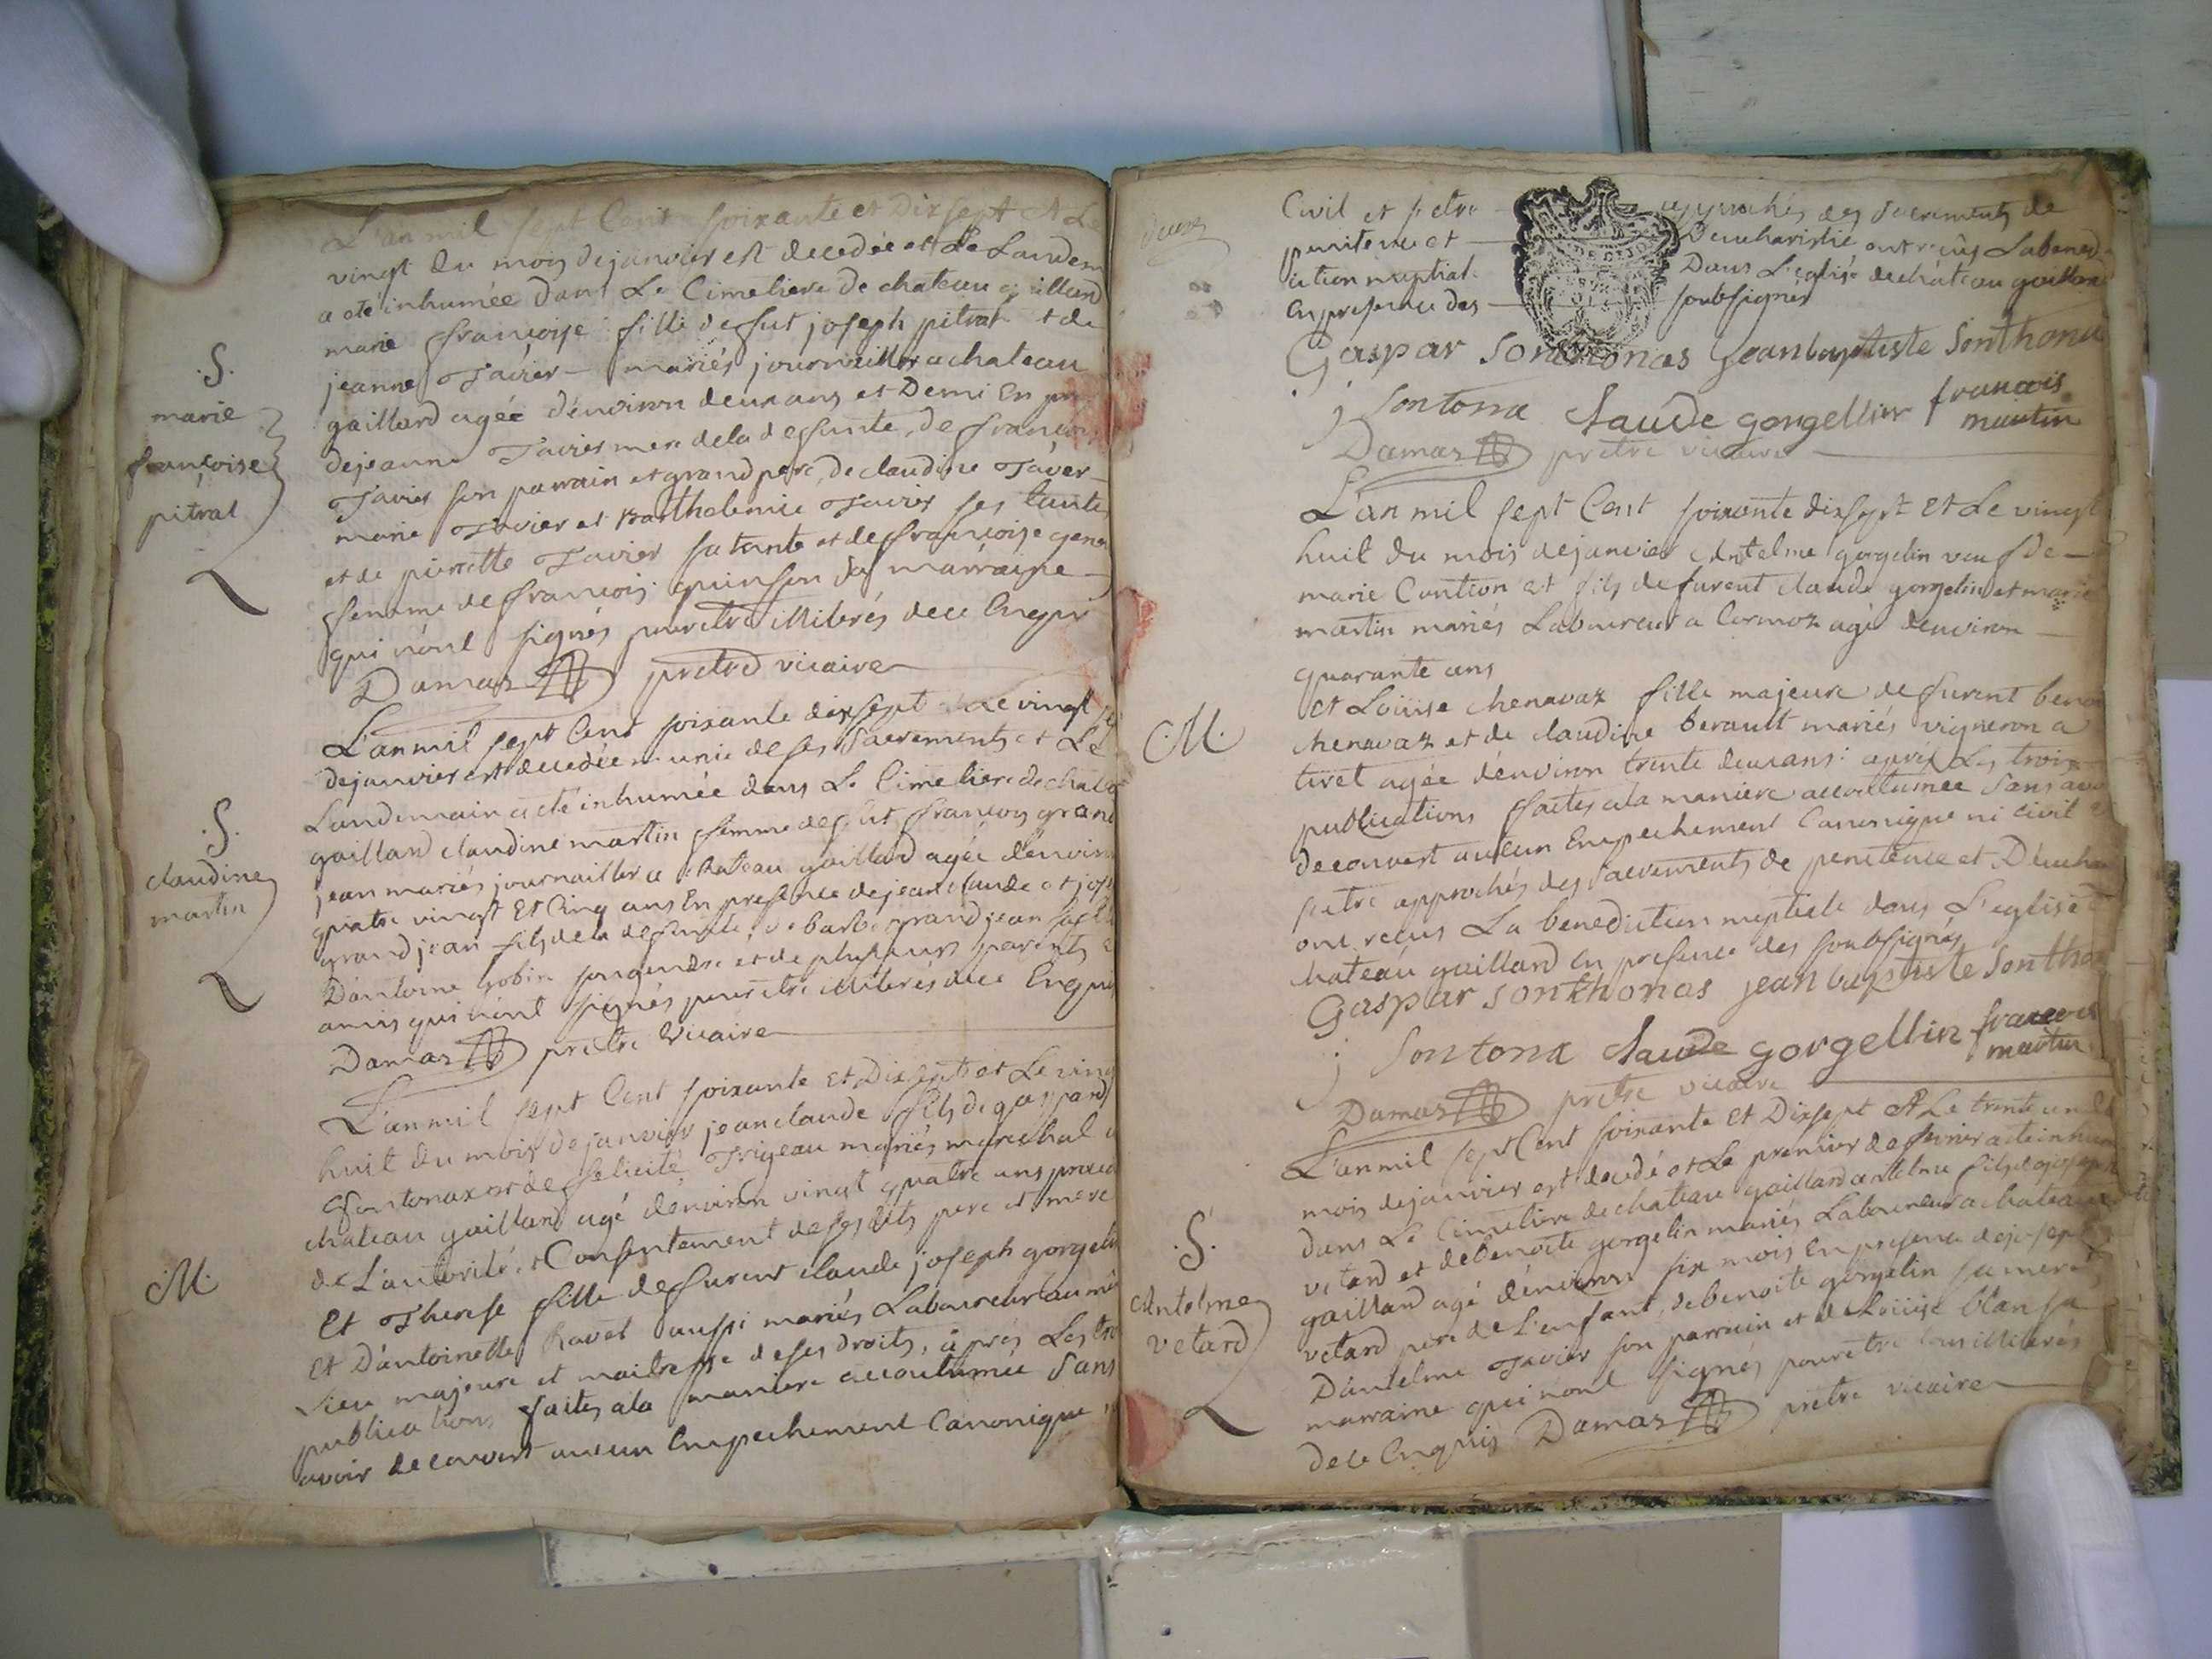 L'an mil sept Cent soixante et Dix sept et Le
vingt du mois de janvier est decedée et Le Landem
a ete inhumée dans Le Cimetiere de chateau gaillard
marie françoise fille de fut joseph pitrat et de
jeanne Tavier mariés journaillier a chateau
gaillard agée d'environ deux ans et Demi En pre
de jeanne Tavier mere de la defunte, de françois
Tavier son parrain et grand pere, de claudine Tavier
marie Tavier et Barthelemie Tavier ses tantes
et de pierrette Tavier sa tante et de françoise
femme de françois quinson sa marraine
qui n'ont signés pour etre illiterés de ce Enquis
Damas prêtre vicaire
.S.
marie
françoise
pitrat
L'an mil sept Cent soixante dix sept et Le vingt
de janvier est decedée munie de ses sacrements et Le
Landemain a eté inhumée dans Le Cimetiere de chateau
gaillard claudine martin femme de fut françois grand
jean mariés journaillier a chateau gaillard agée d'environ
quatre vingt Et Cinq ans En presence de jean claude et jos
grand jean fils de la defunte, de barbe grand jean sa fille
D'antoine gobin son gendre et de plusieurs parents et
amis qui n'ont signés pour etre illiterés de ce Enquis
Damas prêtre Vicaire
.S.
claudine
martin
L'an mil sept Cent soixante et Dix sept et Le vingt
huit du mois de janvier jean claude fils de gaspard
Sontonax et de felicité Trigeau mariés marechal a
chateau gaillard agé d'environ vingt quatre ans proced
de L'autorité et Consentement de ses dits pere et mere
Et Therese fille de furent claude joseph gorgelin
Et D'antoinette Ravet aussi mariés Laboureur au mê
lieu majeure et maitresse de ses droits, après Les tro
publications faites a la maniere accoutumée Sans
avoir decouvert aucun Empechement Canonique
.M.
Civil et s'etre approchés des sacrements de
penitence et D'eucharistie ont reçus La bened
iction nuptial Dans L'eglise de château gaillard
En presence des soubsignés
Gaspar Sonthonas jean baptiste Sonthona
j Sontona Claude gorgellin françois
martin
Damas prêtre vicaire
L'an mil sept Cent soixante dix sept Et Le vingt
huit du mois de janvier Antelme gorgelin veuf de
marie Cantion et fils de furent claude gorgelin et marie
martin mariés Laboureur a Cormoz agé d'environ
quarante ans
et Loüise chenavaz fille majeure de furent benoi
chenavaz et de claudine berault mariés vigneron a
tiret agée d'environ trente deux ans: après Les trois
publications faites a la maniere accoutumée Sans avoir
decouvert aucun Empechement Canonique ni civil et
s'etre approchés des sacrements de penitence et D'eucha
ont reçus La benediction nuptiale dans L'eglise de
chateau gaillard En presence des soubsignés
Gaspar Sonthonas jean baptiste Sonthon
j Sontona Claude gorgellin françois
martin
Damas prêtre vicaire
.M.
L'an mil sept Cent soixante Et Dix sept et Le trente un du
mois de janvier est decedé et Le premier de fevrier a ete inhum
dans Le Cimetiere de chateau gaillard antelme fils de joseph
vetard et de benoite gorgelin mariés Laboureur a chateau
gaillard agé d'environ six mois En presence de joseph
vetard pere de L'enfant, de benoite gorgelin sa mere
D'antelme Tavier son parrain et de Loüise blan sa
marraine qui n'ont signés pour etre tous illiterés
de ce Enquis Damas prêtre vicaire
.S.
Antelme
vetard